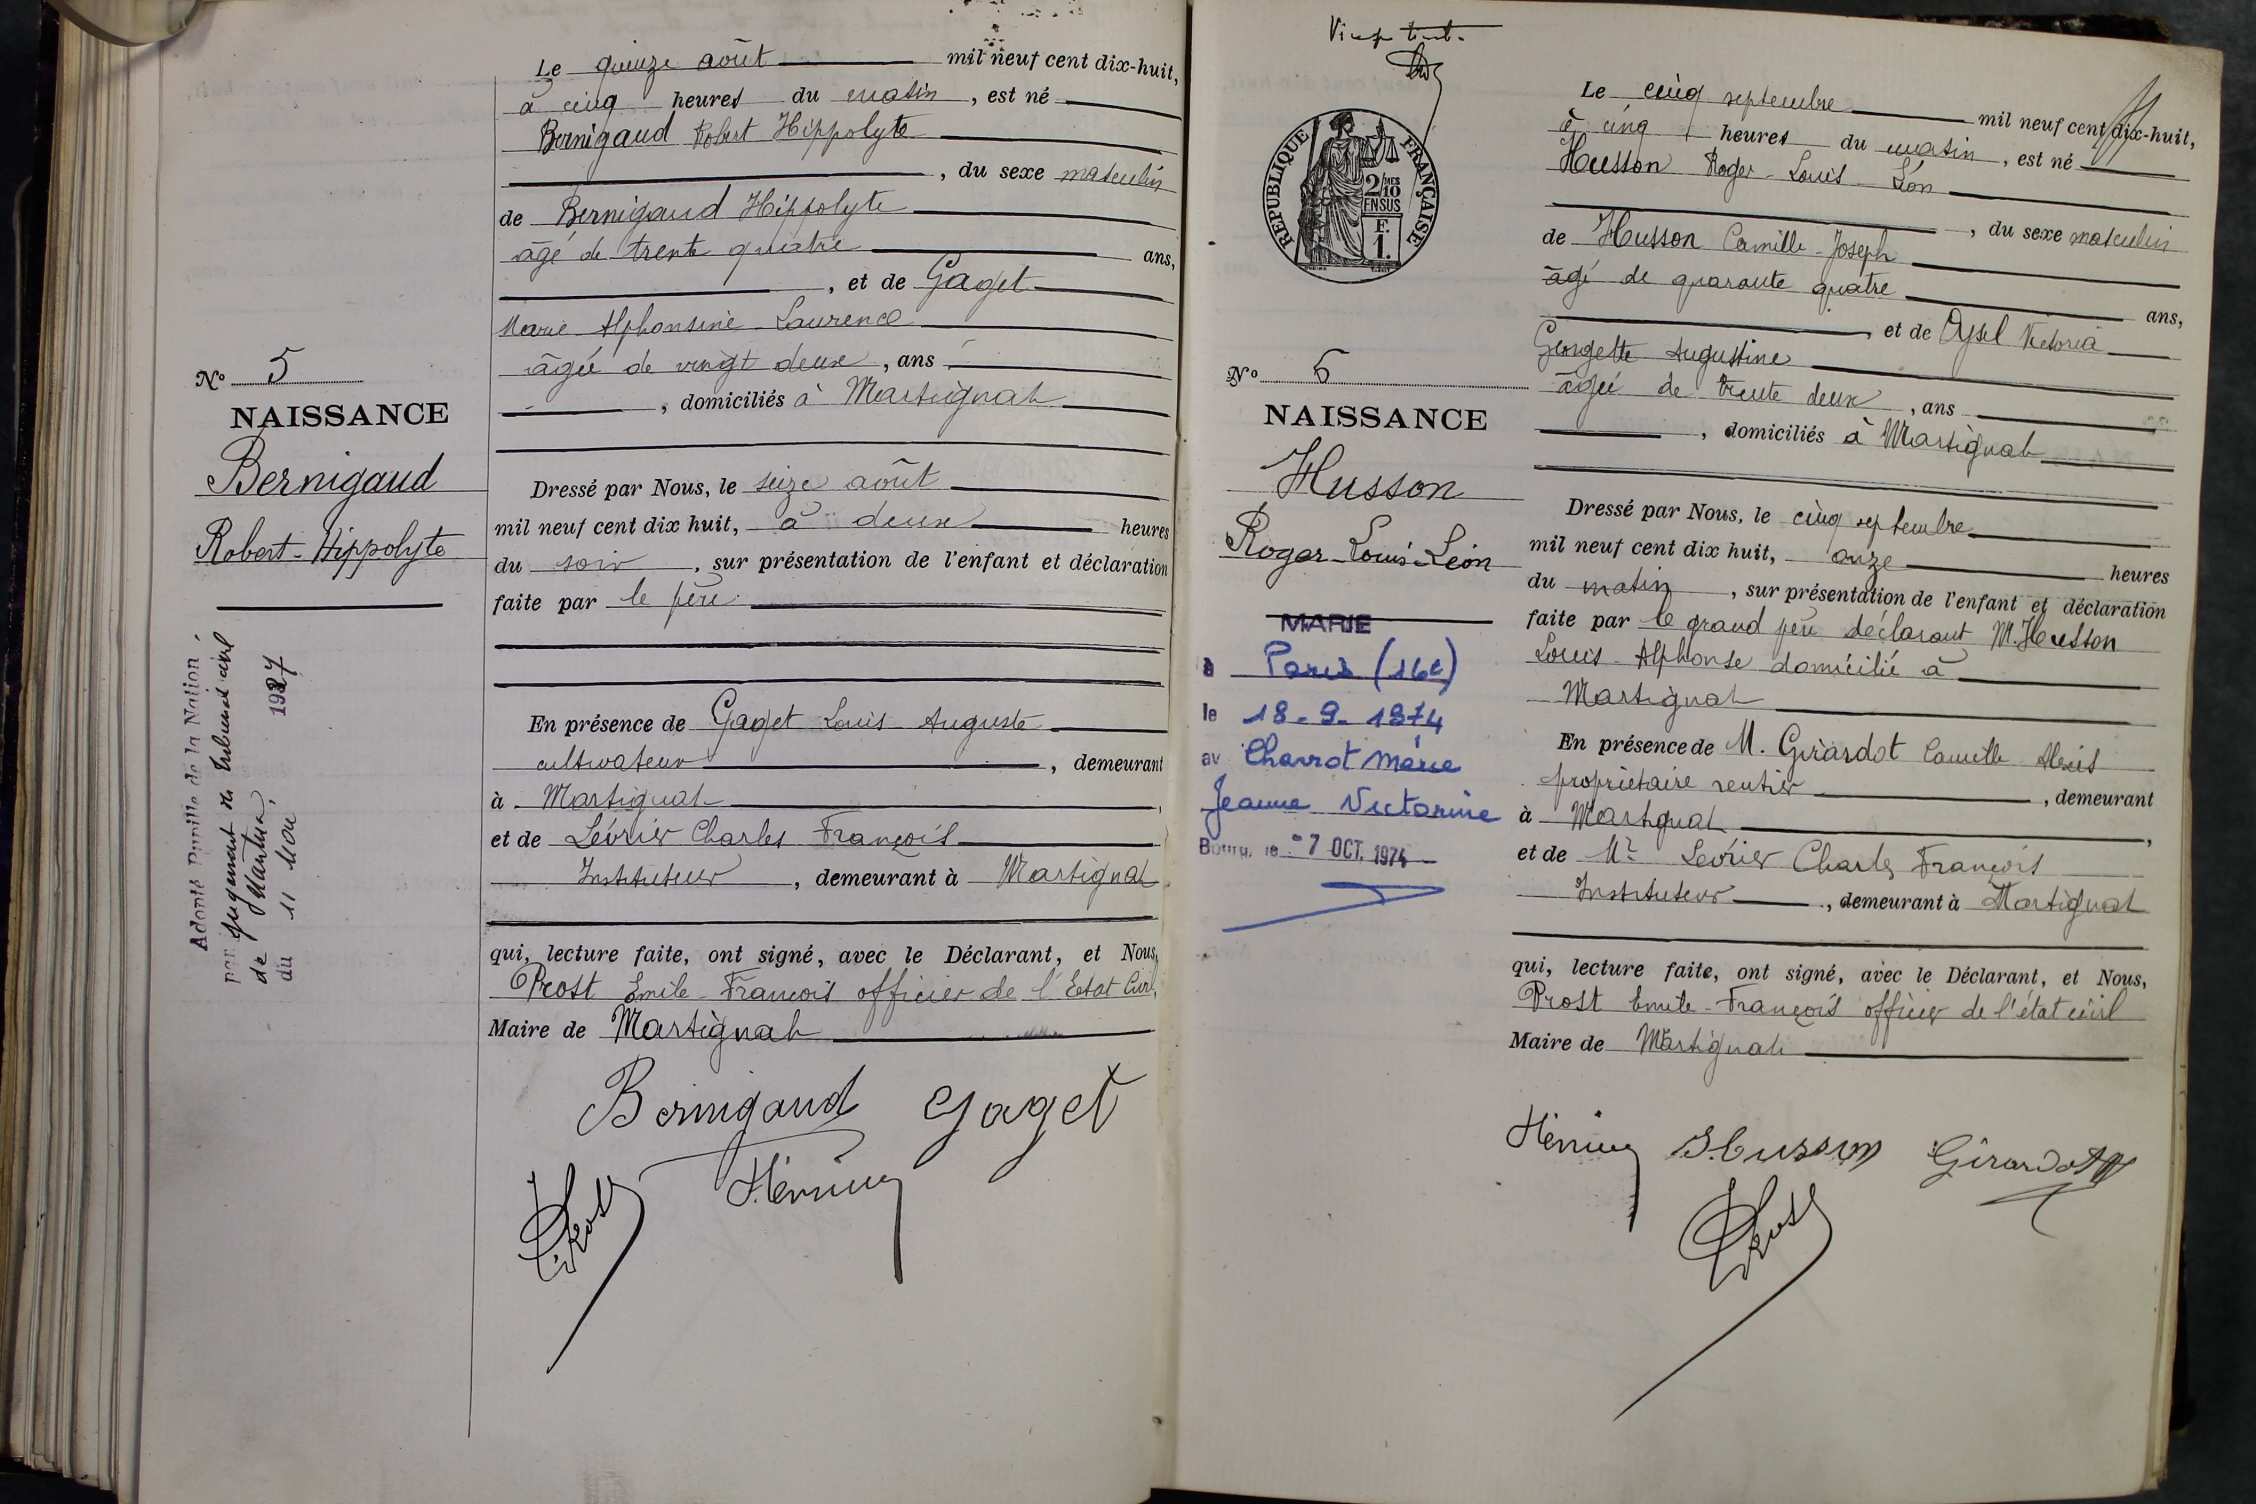 Le quinze août mil neuf cent dix-huit,
à cinq heures du matin, est né
Bernigaud Robert Hippolyte
, du sexe masculin
de Bernigaud Hippolyte
âgé de trente quatre ans,
, et de Gaget
Marie Alphonsine Laurence
âgée de vingt deux, ans
, domiciliés à Martignat
Nº 5
NAISSANCE
Bernigaud
Robert-Hippolyte
Dressé par Nous, le seize août
mil neuf cent dix huit, à deux heures
du soir, sur présentation de l'enfant et déclaration
faite par le père
Adopté Pupille de la Nation
par jugement du tribunal civil
de Nantua,
du 11 Mai 1927
En présence de Gaget Louis Auguste
cultivateur, demeurant
à Martignat,
et de Lévrier Charles François
Instituteur, demeurant à Martignat
qui, lecture faite, ont signé, avec le Déclarant, et Nous,
Prost Emile François officier de l'Etat Civil,
Maire de Martignat
Bernigaud Gaget
Prost
Vingt
RÉPUBLIQUE FRANÇAISE
2/10 MES
EN SUS
F.
1.
Le cinq septembre mil neuf cent dix-huit,
à cinq heures du matin, est né
Husson Roger Louis Léon
, du sexe masculin
de Husson Camille Joseph
âgé de quarante quatre ans,
, et de Oysel Victoria
Georgette Augustine
âgée de trente deux, ans
, domiciliés à Martignat
Nº 6
NAISSANCE
Husson
Roger-Louis-Léon
MARIE
à Paris (16e)
le 18-9-1974
av Charrot Marie
Jeanne Victorine
Bourg, le -7 OCT. 1974
Dressé par Nous, le cinq septembre
mil neuf cent dix huit, onze heures
du matin, sur présentation de l'enfant et déclaration
faite par le grand père déclarant M. Husson
Louis Alphonse domicilié à
Martignat
En présence de M. Girardot Camille Alexis
propriétaire rentier, demeurant
à Martignat,
et de Mr Lévrier Charles François
Instituteur, demeurant à Martignat
qui, lecture faite, ont signé, avec le Déclarant, et Nous,
Prost Emile-François officier de l'état civil
Maire de Martignat
Husson Girardot
Prost